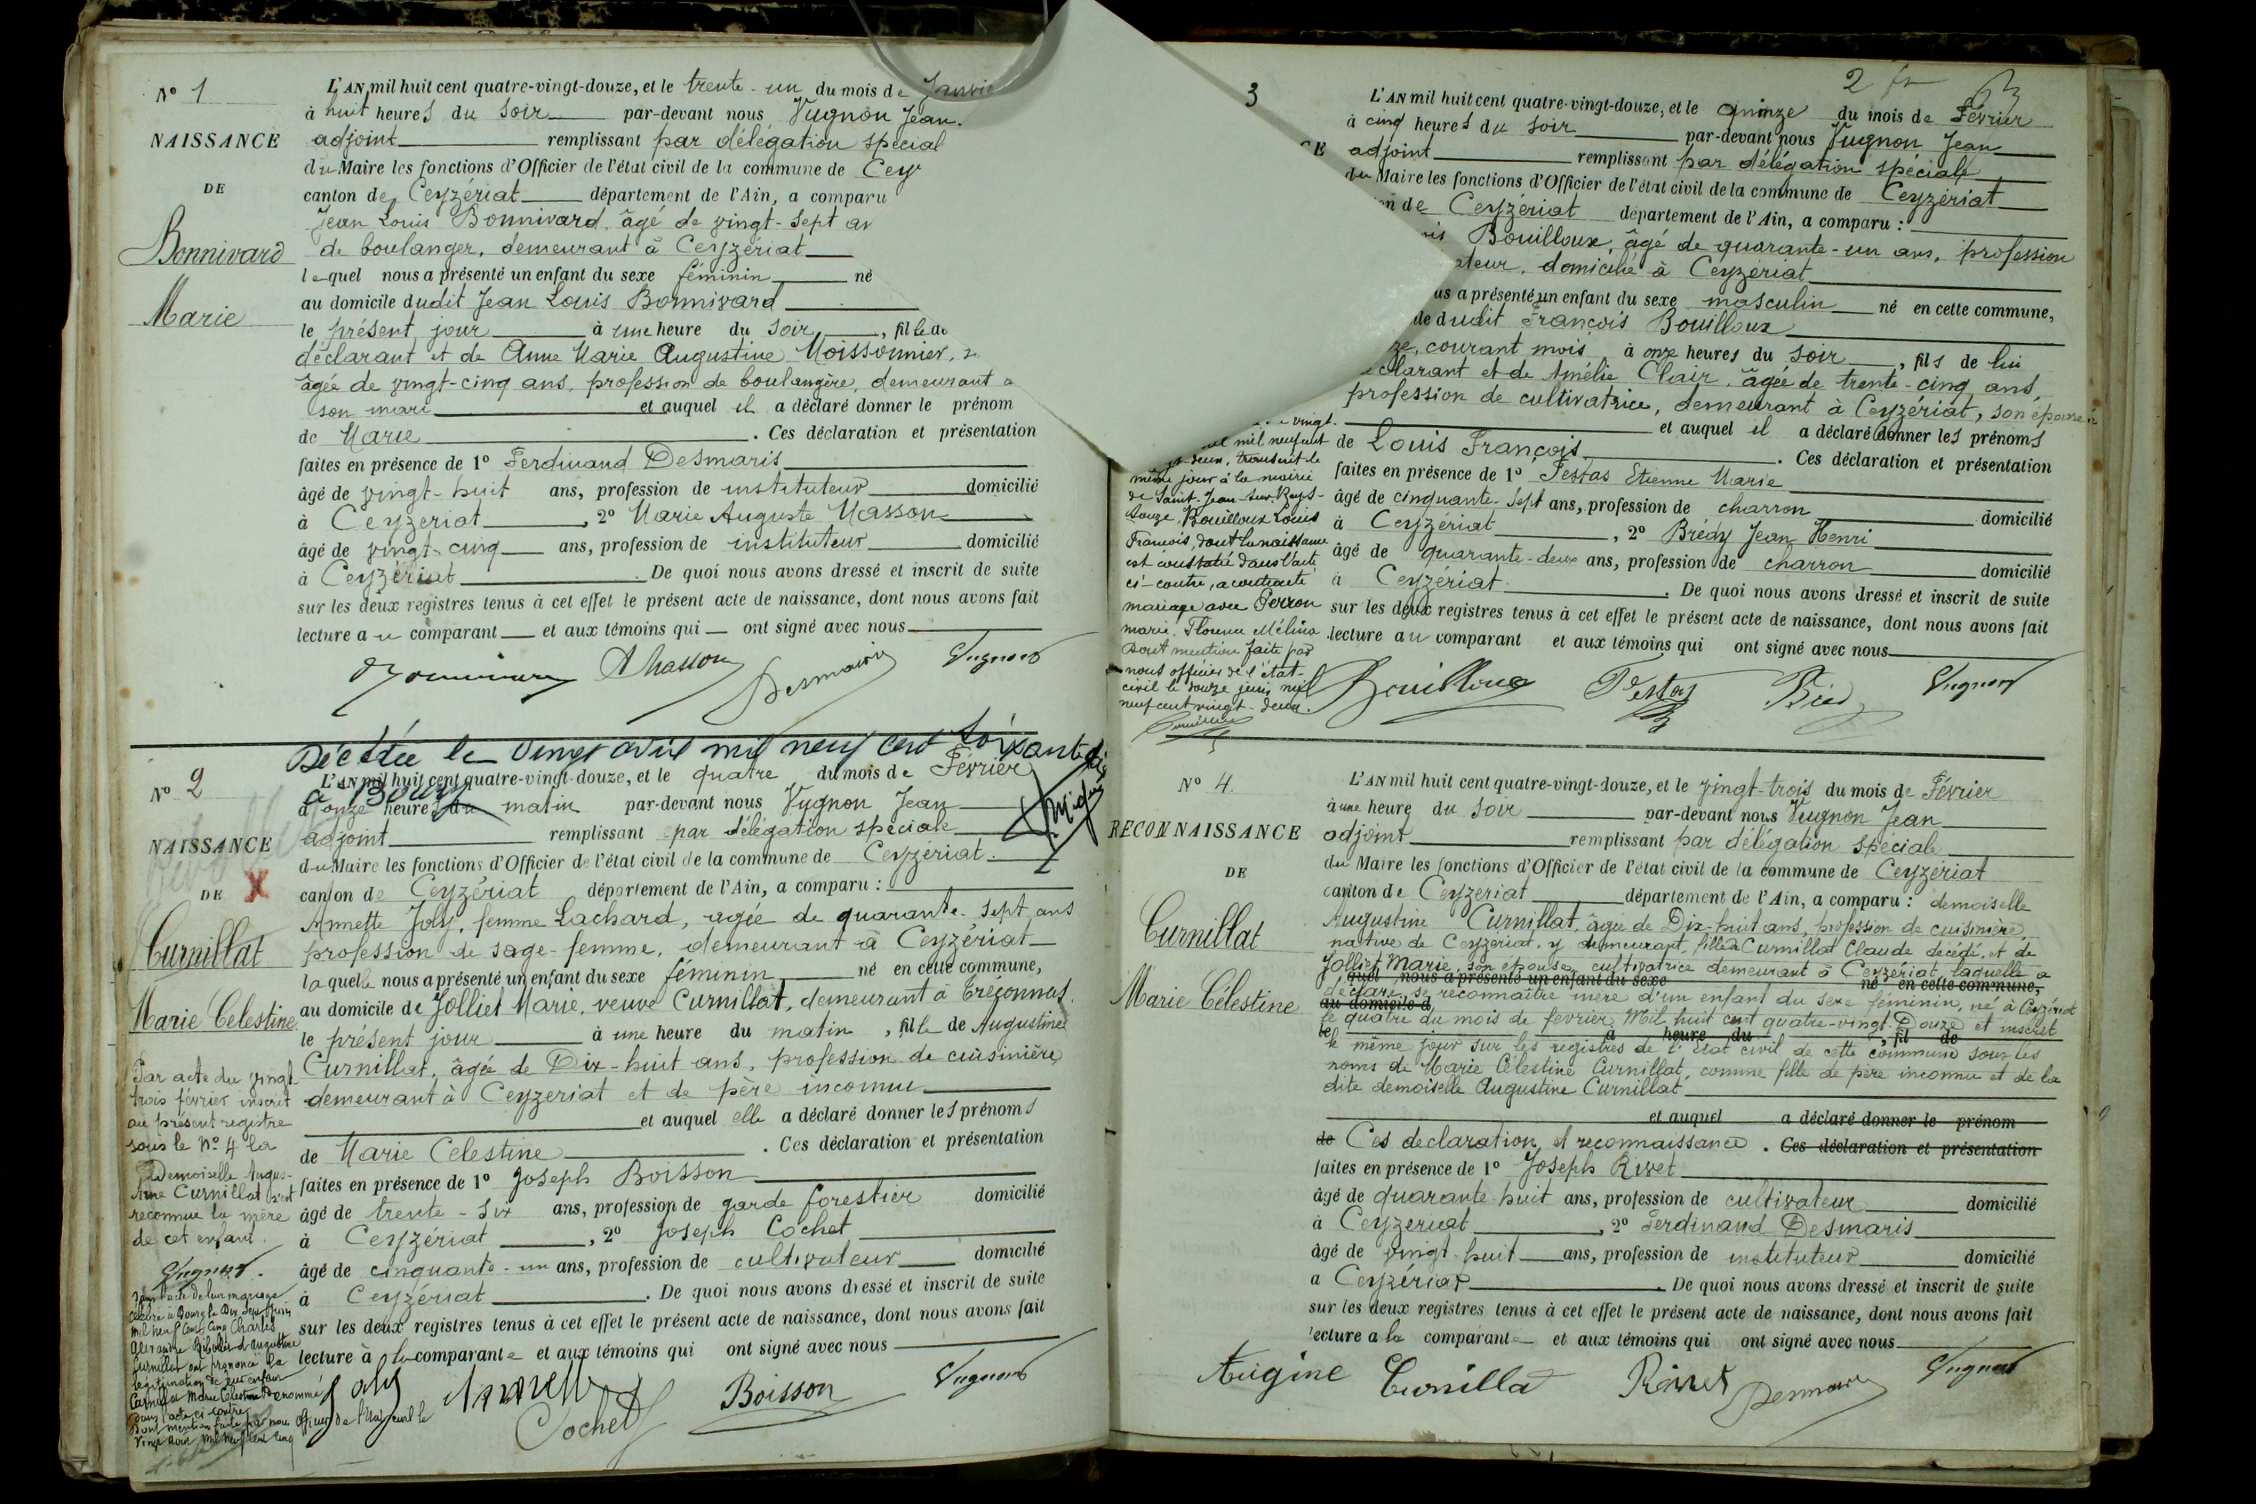 N° 1
NAISSANCE
DE
Bonnivard
Marie
L'AN mil huit cent quatre-vingt-douze, et le trente-un du mois de Janvie
à huit heures du soir par-devant nous Vugnon Jean.
adjoint remplissant par délégation spécial
du Maire les fonctions d'Officier de l'état civil de la commune de Cey
canton de Ceyzériat département de l'Ain, a comparu
Jean Louis Bonnivard, âgé de vingt-sept an
de boulanger, demeurant à Ceyzériat
lequel nous a présenté un enfant du sexe féminin né
au domicile dudit Jean Louis Bonnivard
le présent jour à une heure du soir, fille de
déclarant et de Anne Marie Augustine Moissonnier,
âgée de vingt-cinq ans, profession de boulangère, demeurant a
son mari et auquel il a déclaré donner le prénom
de Marie. Ces déclaration et présentation
faites en présence de 1° Ferdinand Desmaris
âgé de vingt-huit ans, profession de instituteur domicilié
à Ceyzériat, 2° Marie Auguste Masson
âgé de vingt-cinq ans, profession de instituteur domicilié
à Ceyzériat. De quoi nous avons dressé et inscrit de suite
sur les deux registres tenus à cet effet le présent acte de naissance, dont nous avons fait
lecture au comparant et aux témoins qui ont signé avec nous
A Masson Desmaris Vugnon
Décédée le vingt avril mil neuf cent soixante dix
à Bourg
N° 2
NAISSANCE
DE X
Curnillat
Marie Celestine
L'AN mil huit cent quatre-vingt-douze, et le quatre du mois de Février
à onze heures du matin par-devant nous Vugnon Jean
adjoint remplissant par délégation spéciale
du Maire les fonctions d'Officier de l'état civil de la commune de Ceyzériat
canton de Ceyzériat département de l'Ain, a comparu :
Annette Joly, femme Lachard, agée de quarante-sept ans
profession de sage-femme, demeurant à Ceyzériat
laquelle nous a présenté un enfant du sexe féminin né en cette commune,
au domicile de Jolliet Marie, veuve Curnillat, demeurant à Treconnas
le présent jour à une heure du matin, fille de Augustine
Curnillat, âgée de Dix-huit ans, profession de cuisinière
demeurant à Ceyzeriat et de père inconnu
et auquel elle a déclaré donner les prénoms
de Marie Celestine. Ces déclaration et présentation
faites en présence de 1° Joseph Boisson
âgé de trente-six ans, profession de garde forestier domicilié
à Ceyzériat, 2° Joseph Cochet
âgé de cinquante-un ans, profession de cultivateur domicilié
à Ceyzériat. De quoi nous avons dressé et inscrit de suite
sur les deux registres tenus à cet effet le présent acte de naissance, dont nous avons fait
lecture à la comparante et aux témoins qui ont signé avec nous
Joly Annette Cochet Boisson Vugnon
Par acte du vingt
trois février inscrit
au présent registre
sous le N° 4 la
Demoiselle Augus-
tine Curnillat s'est
reconnue la mère
de cet enfant.
Vugnon.
Dans l'acte de leur mariage
célébré à Bourg le Dix Sept Juin
mil neuf Cent Cinq Charles
Curnillat ont prononcé la
légitimation de leur enfant
Curnillat Marie Célestine Dénommé
dans l'acte ci-contre
Dont mention faite par nous Officier de l'Etat civil le
mil neuf cent cinq
2 fr
3
CE
L'AN mil huit cent quatre-vingt-douze, et le quinze du mois de Février
à cinq heures du soir par-devant nous Vugnon Jean
adjoint remplissant par délégation spéciale
du Maire les fonctions d'Officier de l'état civil de la commune de Ceyzériat
on de Ceyzériat département de l'Ain, a comparu :
Bouilloux, âgé de quarante-un ans, profession
ateur, domicilié à Ceyzériat
us a présenté un enfant du sexe masculin né en cette commune,
ile dudit François Bouilloux
ze, courant mois à onze heures du soir, fils de lui
clarant et de Amélie Clair, âgée de trente-cinq ans,
profession de cultivatrice, demeurant à Ceyzériat, son épouse
et auquel il a déclaré donner les prénoms
de Louis François. Ces déclaration et présentation
faites en présence de 1° Testas Etienne Marie
âgé de cinquante-sept ans, profession de charron domicilié
à Ceyzériat, 2° Brédy Jean Henri
âgé de quarante-deux ans, profession de charron domicilié
à Ceyzériat. De quoi nous avons dressé et inscrit de suite
sur les deux registres tenus à cet effet le présent acte de naissance, dont nous avons fait
lecture au comparant et aux témoins qui ont signé avec nous
Bouilloux Testas Vugnon
vingt-
mil neuf cent
deux, transcrit le
même jour à la mairie
de Saint-Jean-sur-Reys-
souze, Bouilloux Louis
François, dont la naissance
est constatée dans l'acte
ci-contre, a contracté
mariage avec Perron
Marie Florence Mélina
Dont mention faite par
nous officier de l'état-
civil le douze juin mil
neuf cent vingt-deux.
N° 4.
RECONNAISSANCE
DE
Curnillat
Marie Célestine
L'AN mil huit cent quatre-vingt-douze, et le vingt-trois du mois de Février
à une heure du soir par-devant nous Vugnon Jean
adjoint remplissant par délégation spéciale
du Maire les fonctions d'Officier de l'état civil de la commune de Ceyzériat
canton de Ceyzeriat département de l'Ain, a comparu : demoiselle
Augustine Curnillat, âgée de Dix-huit ans, profession de cuisinière
native de Ceyzeriat, y demeurant, fille de Curnillat Claude décédé, et de
Jolliet Marie, son épouse, cultivatrice demeurant à Ceyzériat, laquelle a
quel nous a présenté un enfant du sexe né en cette commune,
déclaré se reconnaître mère d'un enfant du sexe féminin, né à Ceyzériat
au domicile d
le quatre du mois de février Mil huit cent quatre-vingt-Douze et inscrit
le à heure du, fil de
le même jour sur les registres de l'état civil de cette commune sous les
noms de Marie Célestine Curnillat, comme fille de père inconnu et de la
dite demoiselle Augustine Curnillat
et auquel a déclaré donner le prénom
de Ces declaration et reconnaissance. Ces déclaration et présentation
faites en présence de 1° Joseph Rivet
âgé de quarante-huit ans, profession de cultivateur domicilié
à Ceyzeriat, 2° Ferdinand Desmaris
âgé de vingt-huit ans, profession de instituteur domicilié
a Ceyzériat. De quoi nous avons dressé et inscrit de suite
sur les deux registres tenus à cet effet le présent acte de naissance, dont nous avons fait
lecture a la comparante et aux témoins qui ont signé avec nous
Augine Curnilla Rivet Desmaris Vugnon